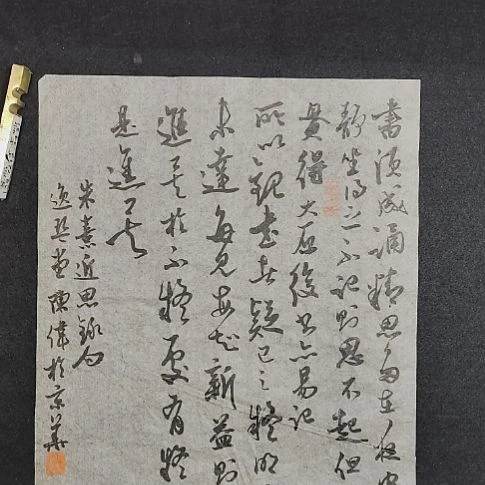 書須成誦精思多在夜中
靜坐得之不記則思不起但
貫得大原後書亦易記
所以觀書者釋己之疑明
未達每見每知新益則
進矣於不疑處有疑
是進矣
朱熹近思錄句
逸 堂陳偉於京華